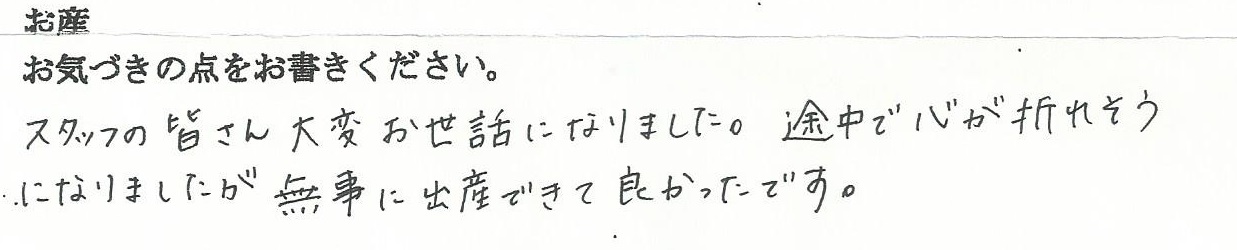 お産
お気づきの点をお書きください。
スタッフの皆さん大変お世話になりました。途中で心が折れそう
になりましたが無事に出産できて良かったです。